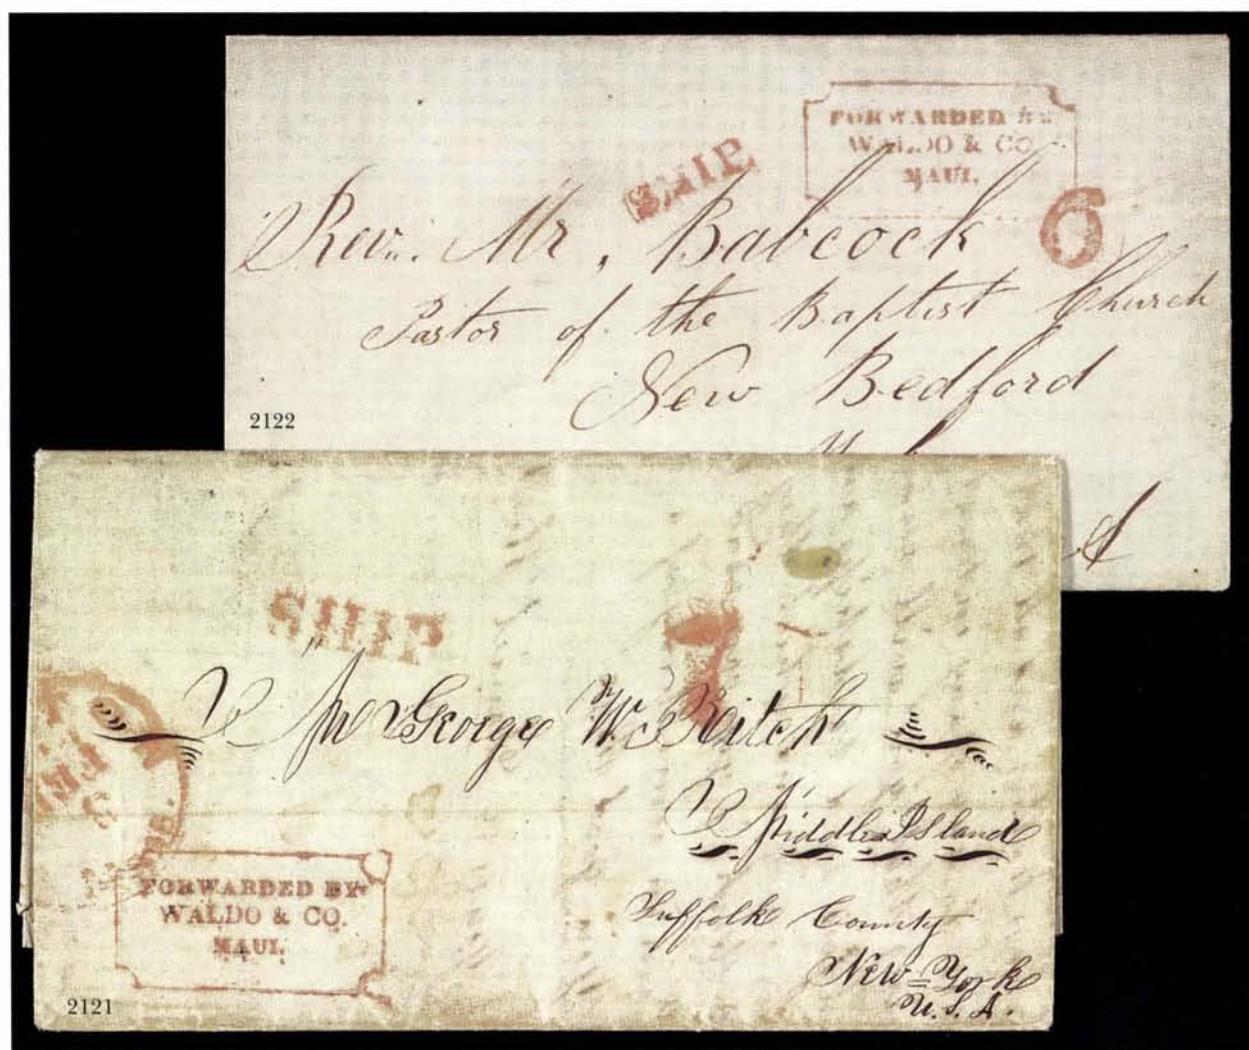 FORWARDED BY
WALDO & CO.
MAUI.
SHIP
6
Rev. Mr. Babcock
Pastor of the Baptist Church
New Bedford
2122
SHIP
7
Mr George W. Ritch
Middle Island
Suffolk County
New=York
U.S.A.
FORWARDED BY
WALDO & CO.
MAUI.
2121